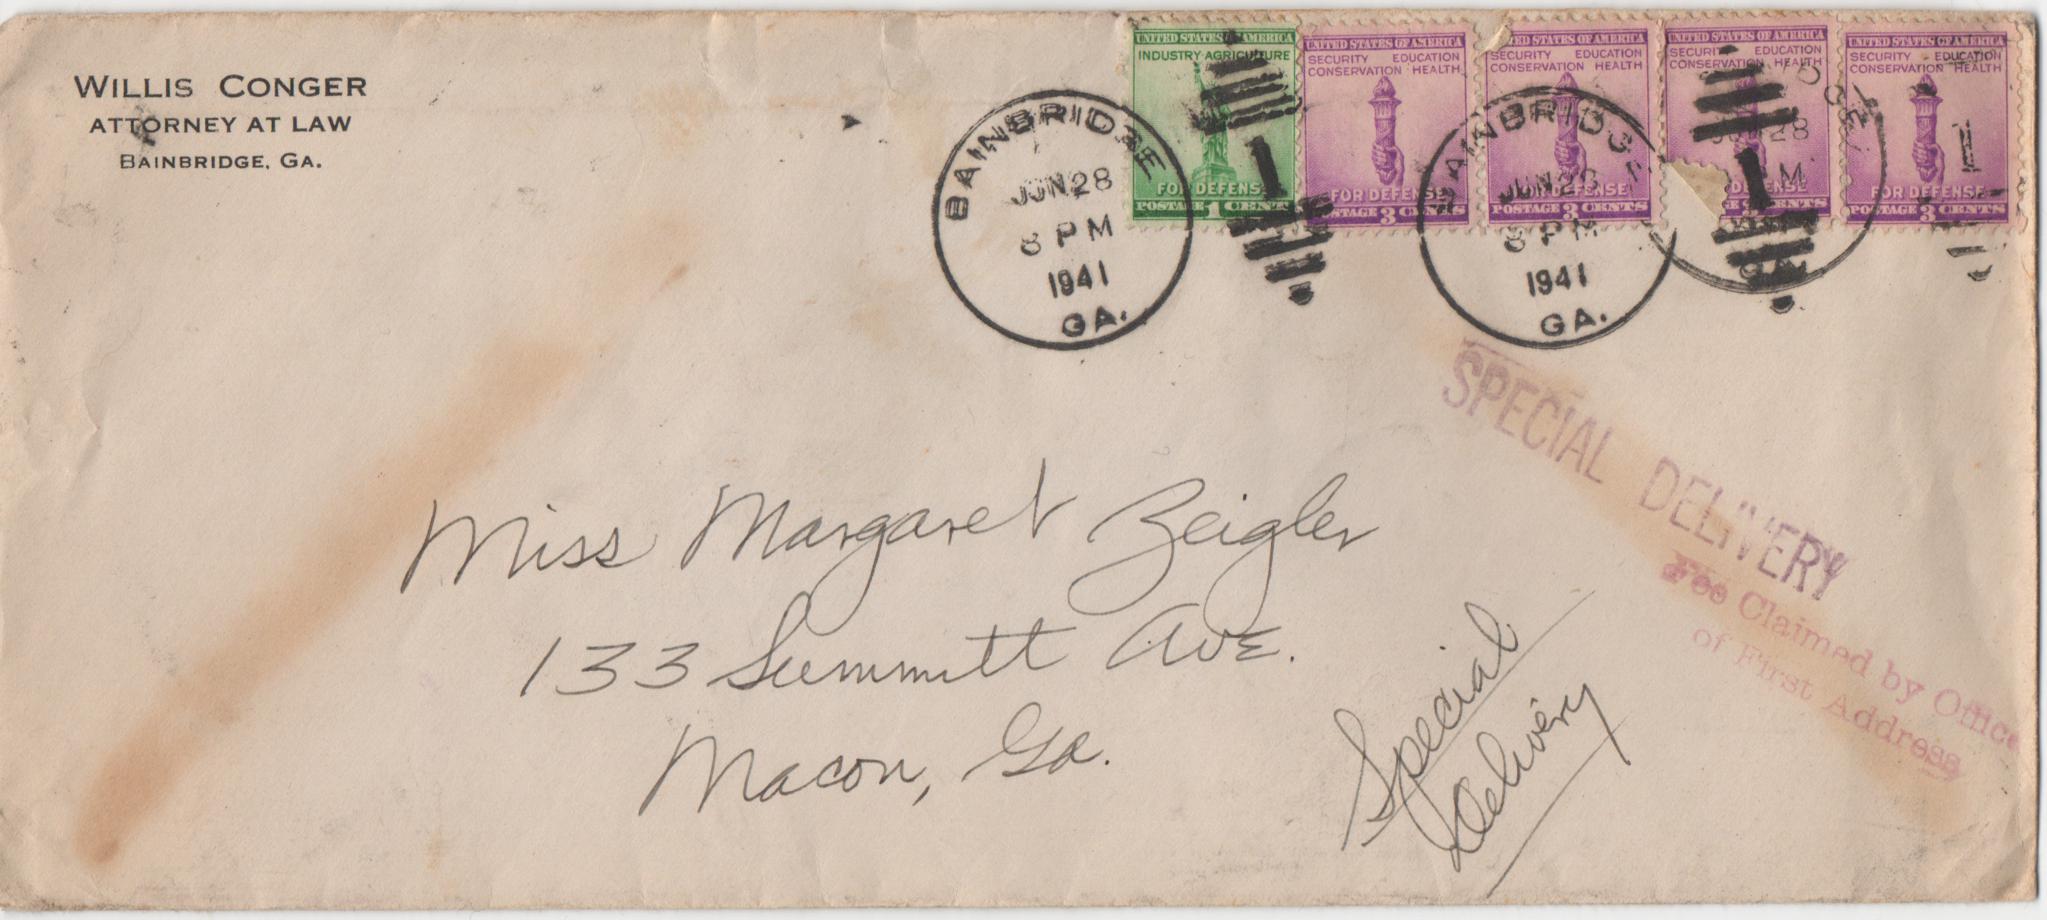 WILLIS CONGER
ATTORNEY AT LAW
BAINBRIDGE, GA.
UNITED STATES OF AMERICA
INDUSTRY AGRICULTURE
FOR DEFENSE
POSTAGE 1 CENT
UNITED STATES OF AMERICA
SECURITY EDUCATION
CONSERVATION HEALTH
FOR DEFENSE
POSTAGE 3 CENTS
UNITED STATES OF AMERICA
SECURITY EDUCATION
CONSERVATION HEALTH
FOR DEFENSE
POSTAGE 3 CENTS
UNITED STATES OF AMERICA
SECURITY EDUCATION
CONSERVATION HEALTH
UNITED STATES OF AMERICA
SECURITY EDUCATION
CONSERVATION HEALTH
FOR DEFENSE
POSTAGE 3 CENTS
BAINBRIDGE
JUN 28
8 PM
1941
GA.
1
BAINBRIDGE
JUN 28
8 PM
1941
GA.
1
GA.
1
SPECIAL DELIVERY
Fee Claimed by Office
of First Address
Miss Margaret Zeigler
133 Summitt Ave.
Macon, Ga.
Special
Delivery